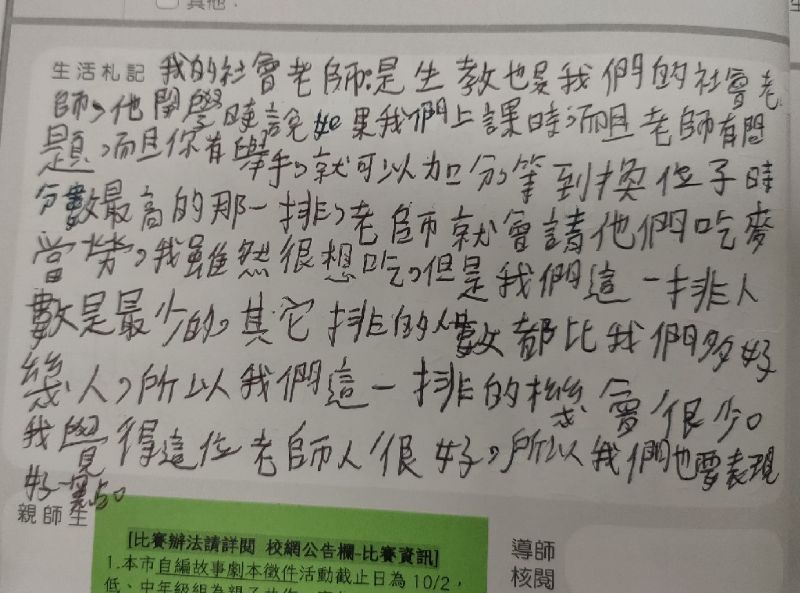 其他:
生活札記 我的社會老師是生教也是我們的社會老
師,他開學時說如果我們上課時,而且老師有問
題,而且你有舉手,就可以加分,等到換位子時
分數最高的那一排,老師就會請他們吃麥
當勞,我雖然很想吃,但是我們這一排人
數是最少的,其它排的人數都比我們多好
幾人,所以我們這一排的機會很少。
我覺得這位老師人很好,所以我們也要表現
好一點。
親師生
[比賽辦法請詳閱 校網公告欄-比賽資訊]
1.本市自編故事劇本徵件活動截止日為10/2,
低、中年級組為親子共作,
導師
核閱